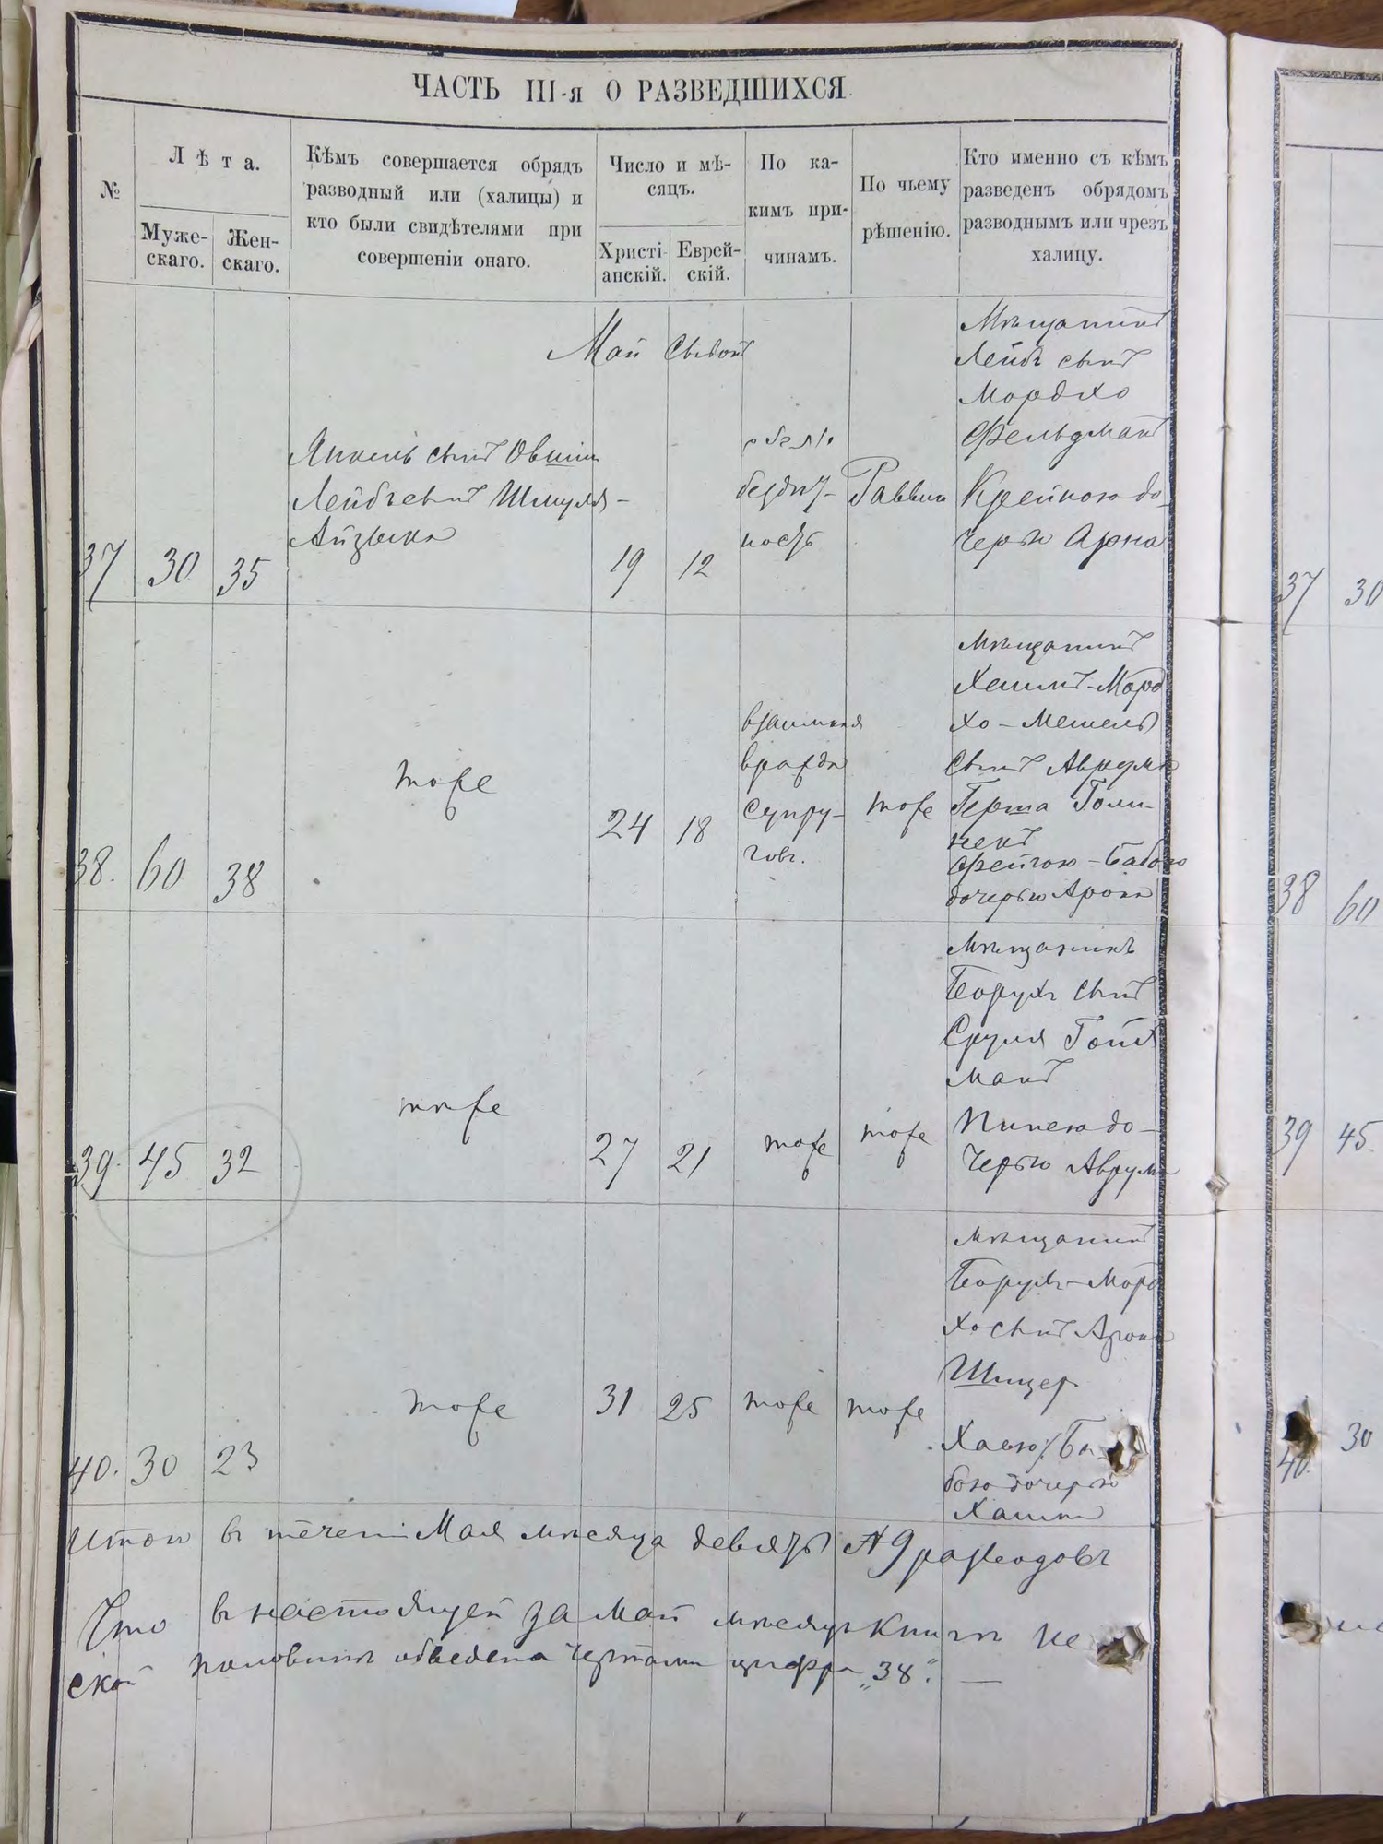 ЧАСТЬ III-я О РАЗВЕДШИХСЯ.
№
Лѣта.
Муже-
скаго.
Жен-
скаго.
Кѣмъ совершается обрядъ
разводный или (халицы) и
кто были свидѣтелями при
совершеніи онаго.
Число и мѣ-
сяцъ.
Христі-
анскій.
Еврей-
скій.
По ка-
кимъ при-
чинамъ.
По чьему
рѣшенію.
Кто именно съ кѣмъ
разведенъ обрядомъ
разводнымъ или чрезъ
халицу.
Май Сывонъ
37 30 35
сынъ
Лейбъ сынъ Шмуля-
Айзыка
19 12
бездѣт-
ность
Раввин
Мѣщанинъ
Лейбъ сынъ
Мордхо
Фельдманъ
Крейною до-
черью Арона
38. 60 38
тоже
24 18
взаимная
вражда
супру-
говъ.
тоже
Мѣщанинъ
Хаимъ-Морд
хо-
сынъ Аврума
Герша
Фейгою-Бабою
дочерью Арона
39. 45 32
тоже
27 21
тоже
тоже
Мѣщанинъ
Борухъ сынъ
Сруля Гойх
манъ
до-
черью Аврума
40. 30 23
тоже
31 25
тоже
тоже
Мѣщанинъ
Борухъ-Морд
хо сынъ Арона
Шпицер
Хаею Ба
бою дочерью
Хаима
Итого въ течені Мая мѣсяца девять № 9 разводовъ
Что въ настоящей за Май мѣсяцъ книгѣ же
ской половинѣ обведена чертами цифра „38“. —
37 30
38 60
39 45
40. 30